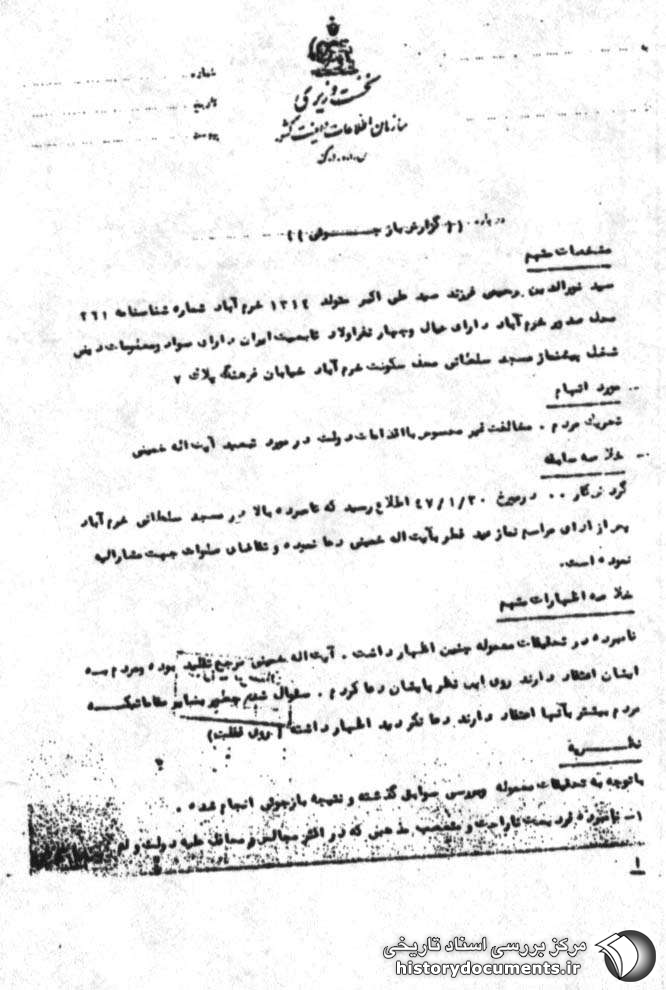 شماره
تاریخ
پیوست
نخست وزیری
سازمان اطلاعات و امنیت کشور
س.ا.و.ا.ک
درباره (( گزارش بازجوئی ))
مشخصات متهم
سید نورالدین رحیمی فرزند سید علی اکبر متولد ۱۳۱۲ خرم آباد شماره شناسنامه ۲۶۱
محل صدور خرم آباد دارای عیال وچهار نفراولاد تابعیت ایران دارای سواد ومعلومات دینی
شغل پیشنماز مسجد سلطانی محل سکونت خرم آباد خیابان فرهنگ پلاک ۷
مورد اتهام
تحریک مردم . مخالفت غیر محسوس با اقدامات دولت در مورد تبعید آیت اله خمینی
خلاصه سابقه
گرد نکار .. درمورخ ۴۷/۱/۲۰ اطلاع رسید که نامبرده بالا در مسجد سلطانی خرم آباد
پس از ادای مراسم نماز عید فطر بآیت اله خمینی دعا نمیده و تقاضای صلوات جهت مشارالیه
نموده است.
خلاصه اظهارات متهم
نامبرده در تحقیقات معموله چنین اظهار داشت . آیت اله خمینی مرجع تقلید بوده ومردم به
ایشان اعتقاد دارند روی این نظر بایشان دعا کردم . سئوال شد چطور بسایر مقاماتیکه
مردم بیشتر بآنها اعتقاد دارند دعا نکردید اظهار داشته ( روی غفلت )
نظریه
باتوجه به تحقیقات معموله وبررسی سوابق گذشته و نتیجه بازجوئی انجام شده .
۱- نامبرده فردیست ناراحت و متعصب مذهبی که در اکثر مجالس و محافل علیه دولت و
۱
مرکز بررسی اسناد تاریخی
historydocuments.ir